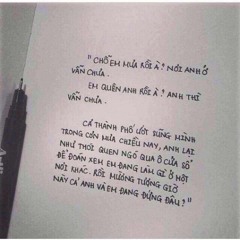 "CHỖ EM MƯA RỒI À? NƠI ANH Ở
VẪN CHƯA.
EM QUÊN ANH RỒI À? ANH THÌ
VẪN CHƯA.
CẢ THÀNH PHỐ ƯỚT SŨNG MÌNH
TRONG CƠN MƯA CHIỀU NAY, ANH LẠI
NHƯ THÓI QUEN NGÓ QUA Ô CỬA SỔ
ĐỂ ĐOÁN XEM EM ĐANG LÀM GÌ Ở MỘT
NƠI KHÁC. RỒI MƯỜNG TƯỢNG GIỜ
NÀY CẢ ANH VÀ EM ĐANG ĐỨNG ĐÂU?"